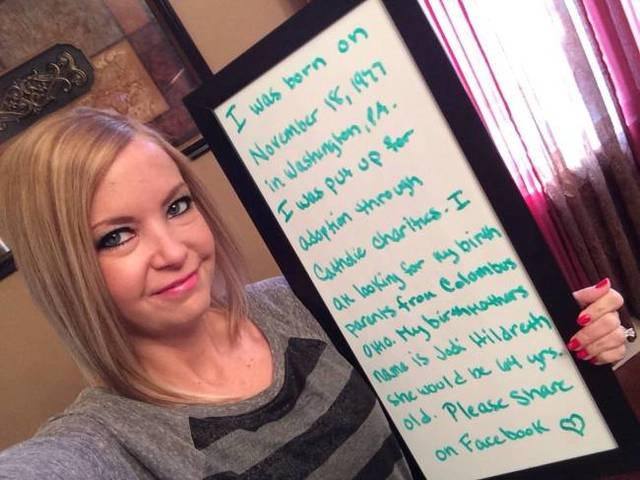 I was born on
November 18, 1977
in Washington, PA.
I was put up for
adoption through
Catholic charities. I
am looking for my birth
parents from Columbus
Ohio. My birthmothers
name is Jodi Hildreth
she would be 64 yrs.
old. Please Share
on Facebook ♡